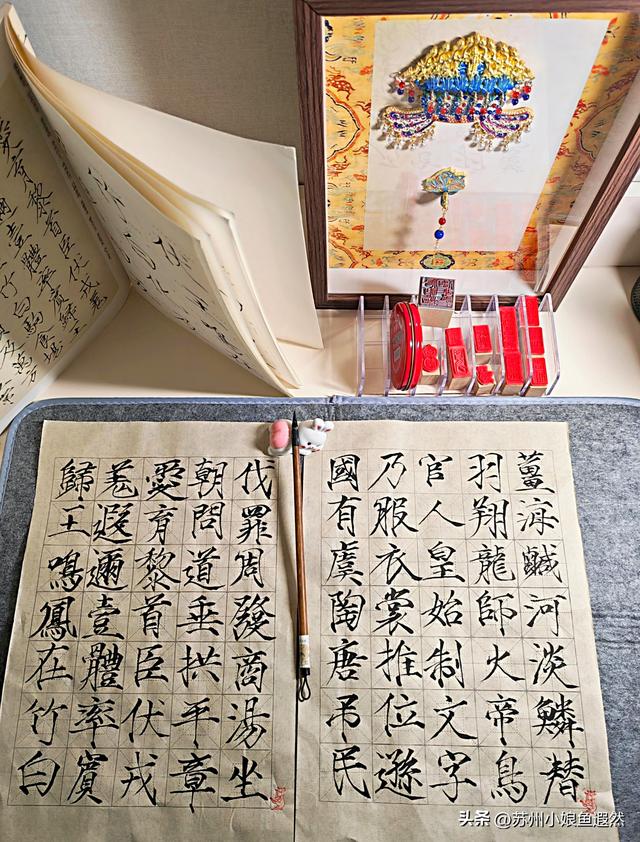 薑海鹹河淡鱗替
羽翔龍師火帝鳥
官人皇始制文字
乃服衣裳推位遜
國有虞陶唐吊民
伐罪周發商湯坐
朝問道垂拱平章
愛育黎首臣伏戎
羌遐邇壹體率賓
歸王鳴鳳在竹白
头条 @苏州小娘鱼遐然